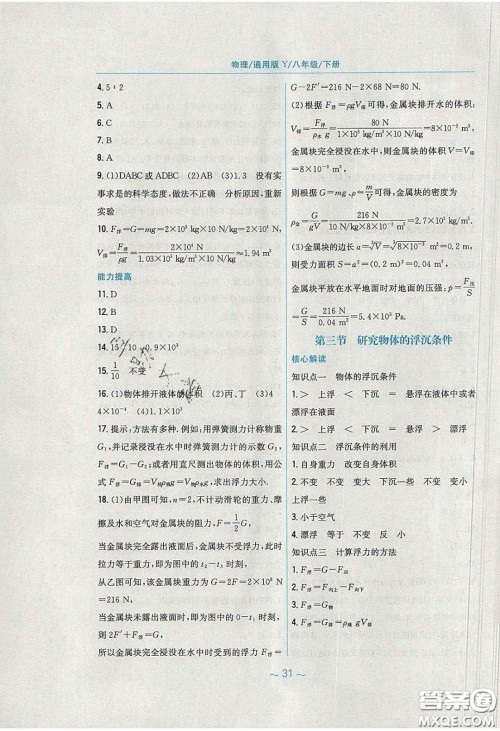 物理/通用版 Y/八年级/下册
4. 5∶2
5. A
6. C
7. B
8. A
9. (1)DABC或ADBC (2)AB (3)1.3 没有实
事求是的科学态度,做法不正确 分析原因,重新
实验
10. F浮=G=mg=2×10³×10 N=2×10⁴ N
V排=F浮/ρg=2×10⁴ N/(1.03×10³ kg/m³×10 N/kg)≈1.94 m³
能力提高
11. D
12. D
14. 15 10 0.9×10³
15. 1/10 不变
16. (1)物体排开液体的体积 (2)丙、丁 (3)4
4×10⁻⁴ (4)1×10³
17. 提示:方法有多种.例如:用弹簧测力计称物重
G₁,并记录浸没在水中时弹簧测力计的示数 G₂,
F浮=G₁-G₂;或者用直尺测出物体的体积V物,
则F浮=ρ水V排g=ρ水V物g,求出浮力大小.
18. (1)由甲图可知,n=2,不计动滑轮的重力、摩
擦及水和空气对金属块的阻力,F=1/2G,
当金属块完全露出液面后,金属块不受浮力,此时
拉力等于重力,即为图中的 t₂-t₃ 时刻,
从乙图可知,该金属块重力为 G=2F=2×108 N
=216 N,
当金属块未露出液面时,即为图中的 0-t₁ 时刻,
则 2F′+F浮=G.
所以金属块完全浸没在水中时受到的浮力 F浮=
G-2F′=216 N-2×68 N=80 N.
(2)根据 F浮=ρgV排可得,金属块排开水的体积:
V排=F浮/ρ水g=80 N/(1×10³ kg/m³×10 N/kg)=8×10⁻³ m³,
金属块完全浸没在水中,则金属块的体积 V=V排
=8×10⁻³ m³,
则根据 G=mg、ρ=m/V可得,金属块的密度为
ρ金=G/gV=216 N/(10 N/kg×8×10⁻³ m³)=2.7×10³ kg/m³.
(3)金属块的边长 a=∛V=∛(8×10⁻³ m³)=0.2 m,
则受力面积 S=a²=(0.2 m)²=0.04 m²,
金属块平放在水平地面时对地面的压强:p=F压/S=
G/S=216 N/0.04 m²=5.4×10³ Pa.
第三节 研究物体的浮沉条件
核心解读
知识点一 物体的浮沉条件
1. > 上浮 < 下沉 = 悬浮在液体中或者
漂浮在液面
2. > 下沉 < 上浮 = 悬浮
知识点二 浮沉条件的利用
1. 自身重力 改变自身体积
2. 不变 不变 变大 下沉一些 不变 变小
上浮一些
3. 小于空气
4. 漂浮 等于 不变 反 小
知识点三 计算浮力的方法
1. F浮=G-F示
2. F浮=F向上-F向下
3. F浮=G物
4. F浮=G排=ρ液gV排
~ 31 ~
答案圈
MXQE.COM